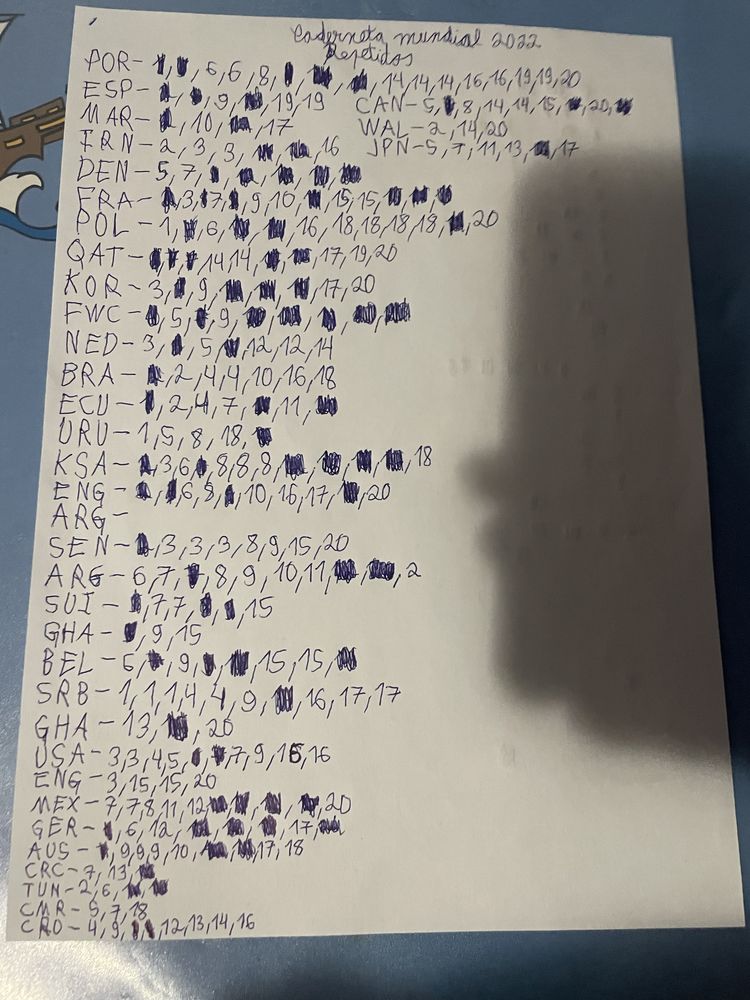 Caderneta mundial 2022
Repetidos
POR- 6,6,8, 14,14,14,16,16,19,19,20
ESP- 9, 19,19 CAN-5, 8,14,14,15, 20,
MAR- 10, 17 WAL-2,14,20
IRN-2,3,3, 16 JPN-5,7,11,13, 17
DEN-5,7,
FRA- 3, 7, 9,10, 15,15,
POL-1, 6, 16,18,18,18,18, 20
QAT- 14,14, 17,19,20
KOR-3, 9, 17,20
FWC- 5, 9,
NED-3, 5, 12,12,14
BRA- 2,4,4,10,16,18
ECU- 2,4,7, 11,
URU-1,5,8,18,
KSA- 3,6, 8,8,8, 18
ENG- 6, 10,16,17, 20
ARG-
SEN- 3,3,3,8,9,15,20
ARG-6,7, 8,9,10,11, 2
SUI- 7,7, 15
GHA- 9,15
BEL-6, 9, 15,15,
SRB-1,1,1,4,4,9, 16,17,17
GHA-13, 20
USA-3,3,4,5, 7,9,16,16
ENG-3,15,15,20
MEX-7,7,8,11,12, 20
GER- 6,12, 17,
AUS- 9,9,9,10, 17,18
CRC-7,13,
TUN-2,6,
CMR-5,7,18
CRO-4,9, 12,13,14,16